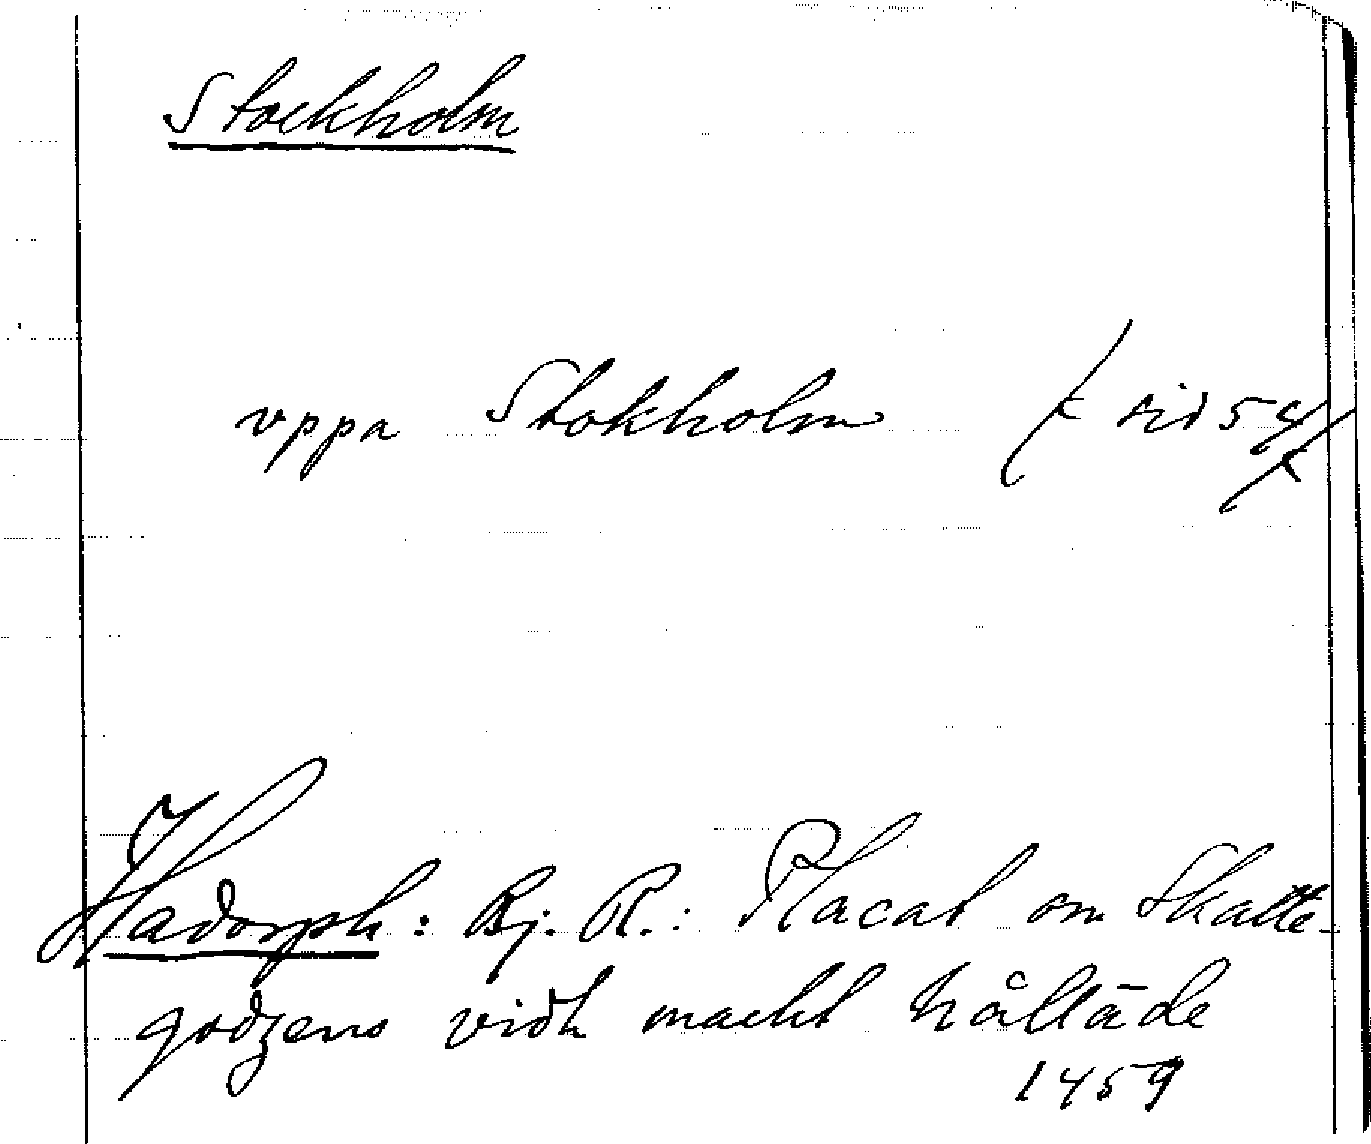 Stockholm
vppa Stokholm (sid 54)
Hadorph: Bj. R.: Placat om Skatte-
godzens vidh macht hållāde
1459